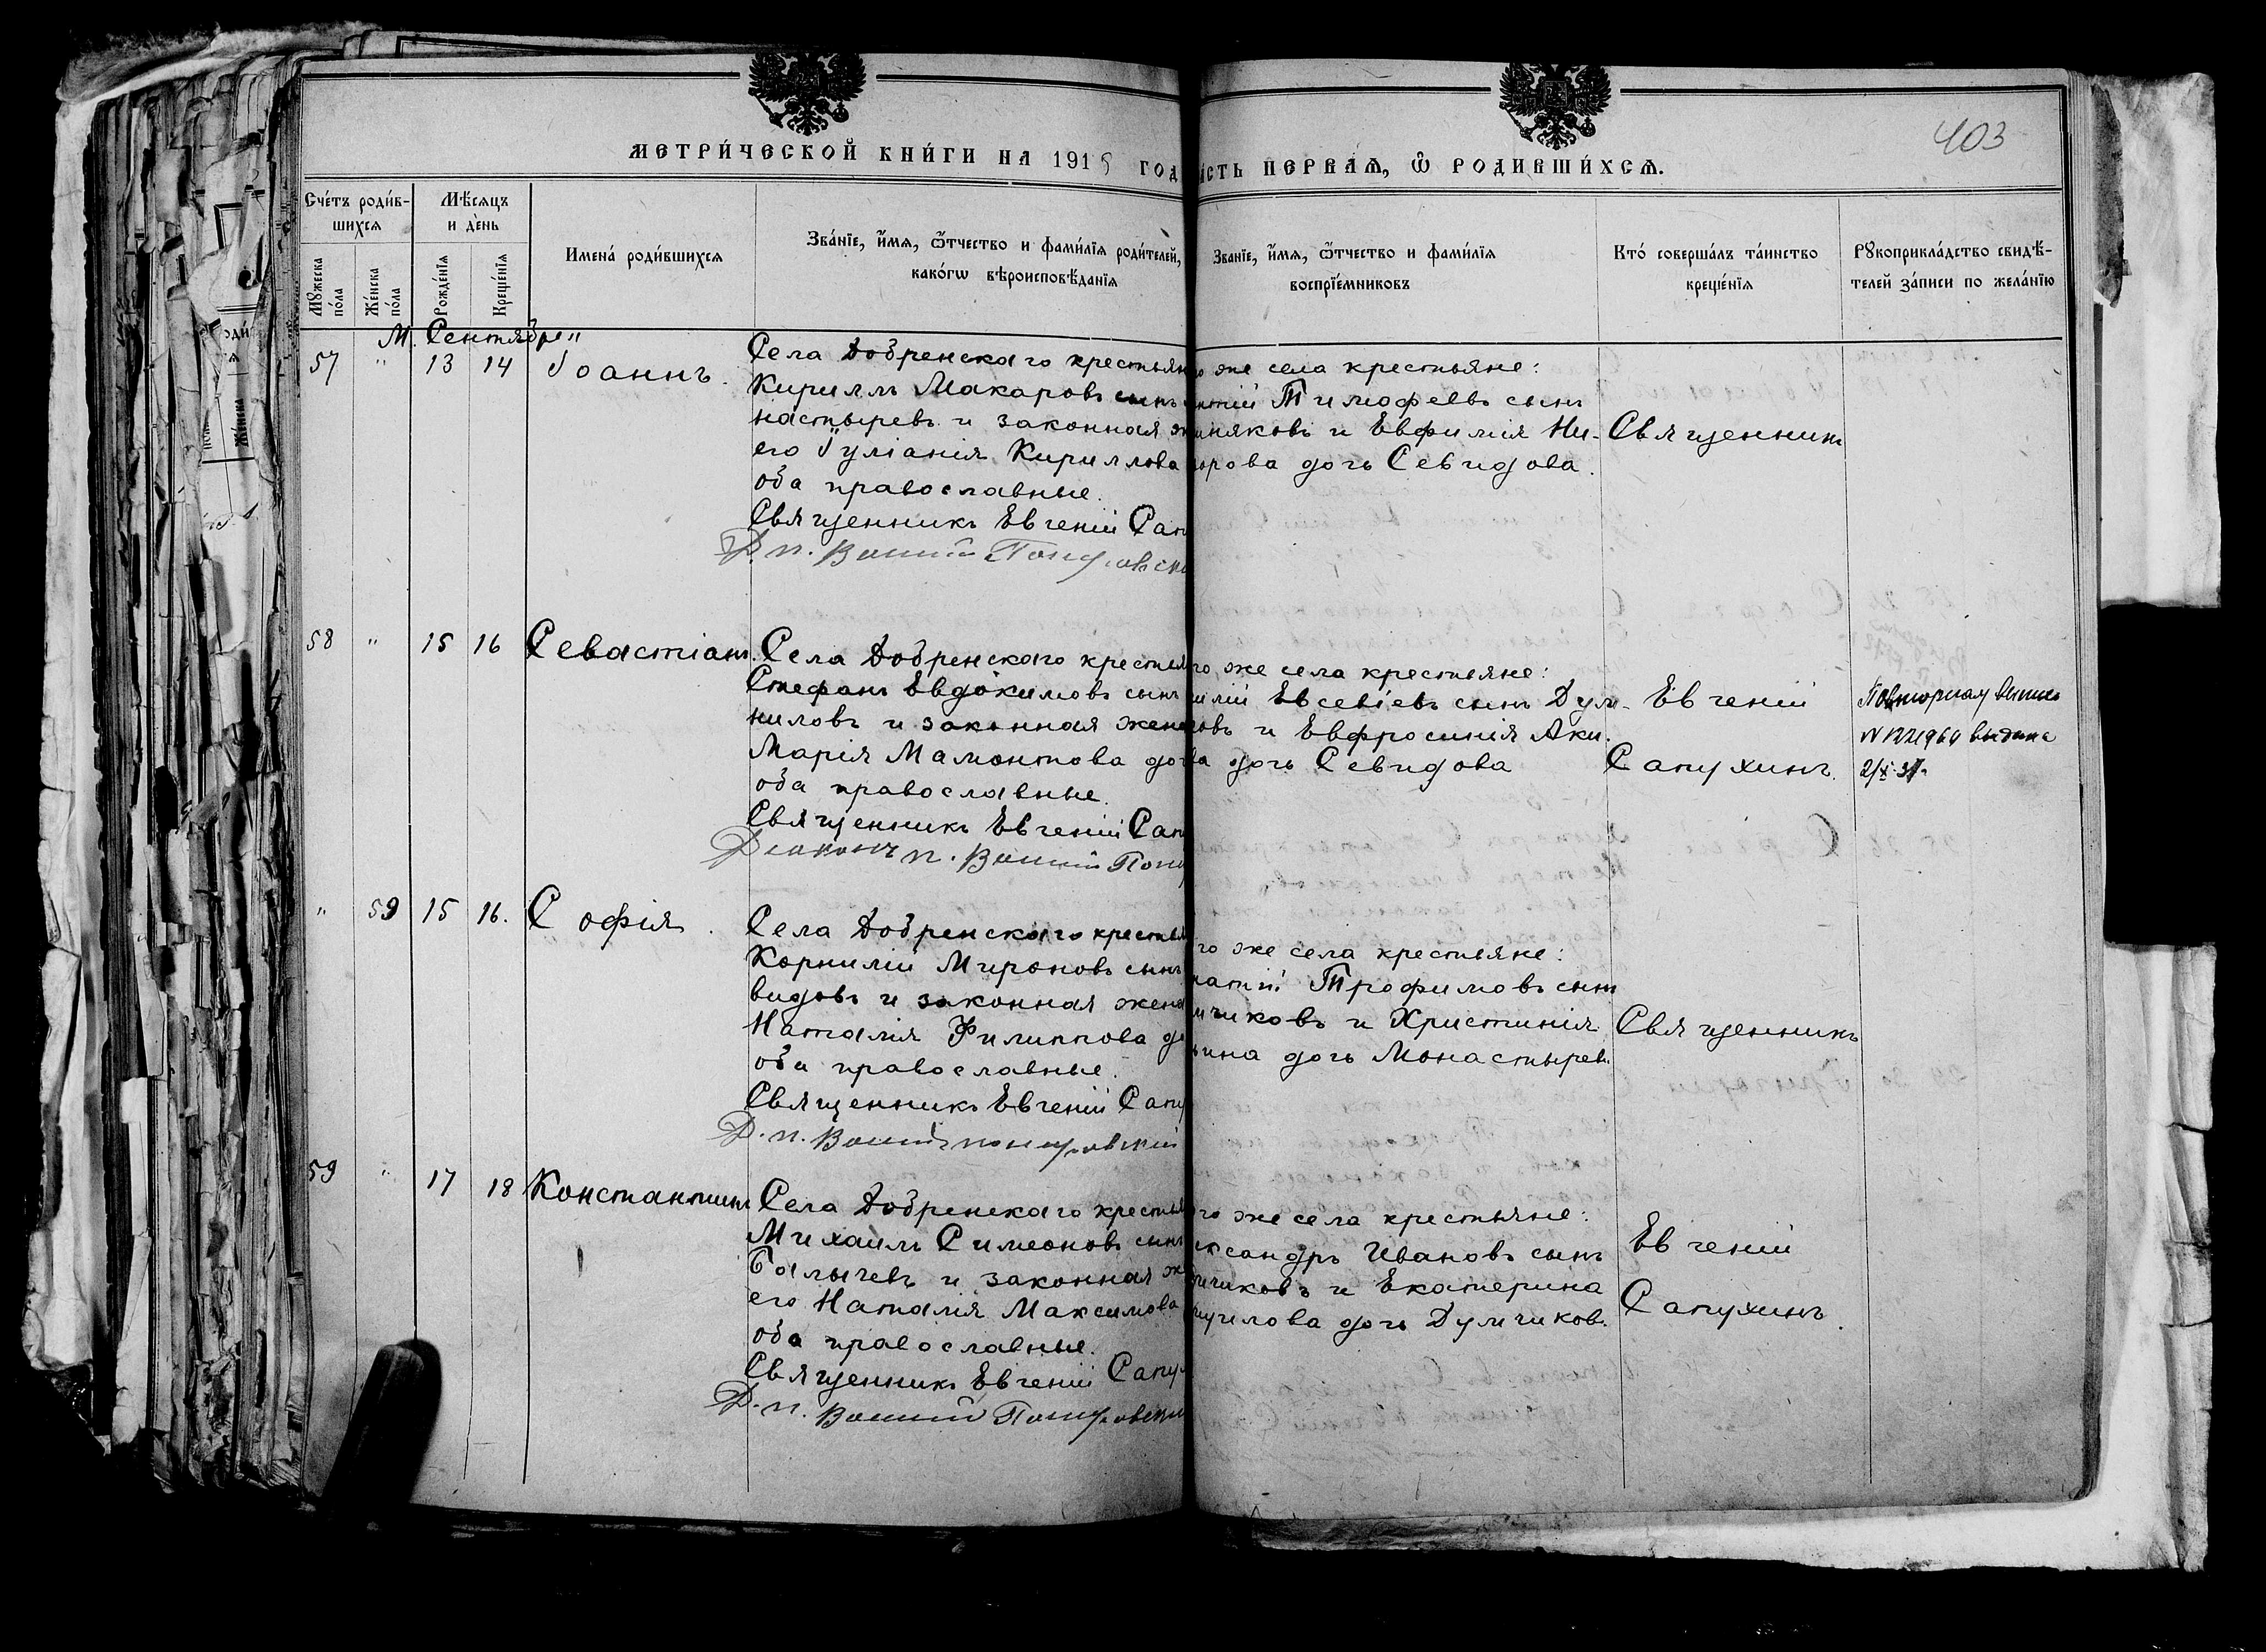 403
МЕТРИ́ЧЕСКОЙ КНИ́ГИ НА 1915 ГОД
А́СТЬ ПЕРВАЯ, Ѡ҆ РОДИВШИ́ХСЯ.
Сче́тъ роди́в-
шихся
Мѣ́сяцъ
и де́нь
Имена̀ роди́вшихся
Зва́нїе, и҆́мя, ѻ҆́тчество и фами́лїя роди́телей,
како́гѡ вѣроисповѣ́данїя
Зва́нїе, и҆́мя, ѻ҆́тчество и фами́лїя
воспрїе́мниковъ
Кто́ соверша́лъ та́инство
креще́нїя
Рꙋкоприкла́дство свидѣ́-
телей за́писи по жела́нїю
Мꙋ́жеска
по́ла
Же́нска
по́ла
Рожде́нїя
Креще́нїя
М. Сентябрѣ
57 " 13 14 Іоаннъ.
Села Добренскаго крестьян
Кирилъ Макаровъ сынъ
настыревъ и законная ж
его Іуліанія Кириллова
оба православные.
Священникъ Евгеній Сап
Д. п.
о же села крестьяне:
Тимофеевъ сынъ
няковъ и Евфимія Ни-
орова дочь Севидова.
Священникъ
58 " 15 16 Севастіанъ.
Села Добренскаго крестья
Стефанъ Евдокимовъ сынъ
ниловъ и законная жена
Марія Мамонтова доч
оба православные.
Священникъ Евгеній Сап
Діаконъ п.
го же села крестьяне:
илій Евсевіевъ сынъ Дум-
ковъ и Евфросинія Аки-
ва дочь Севидова
Евгеній
Сапухинъ.
Повторная выпис
N 1221964 выдана
" 59 15 16. Софія.
Села Добренскаго крестья
Корнилій Мироновъ сынъ
видовъ и законная жена
Наталія Филиппова до
оба православные.
Священникъ Евгеній Сапу
Д. п.
го же села крестьяне:
натій Трофимовъ сынъ
мчиковъ и Христинія
ина дочь Монастырев.
Священникъ
59 " 17 18 Константинъ
Села Добренскаго крестья
Михаилъ Симеоновъ сынъ
Балычевъ и законная ж
его Наталія Максимова
оба православные.
Священникъ Евгеній Сапу
Д. п.
го же села крестьяне:
ександръ Ивановъ сынъ
мчиковъ и Екатерина
дочь Думчиков.
Евгеній
Сапухинъ.